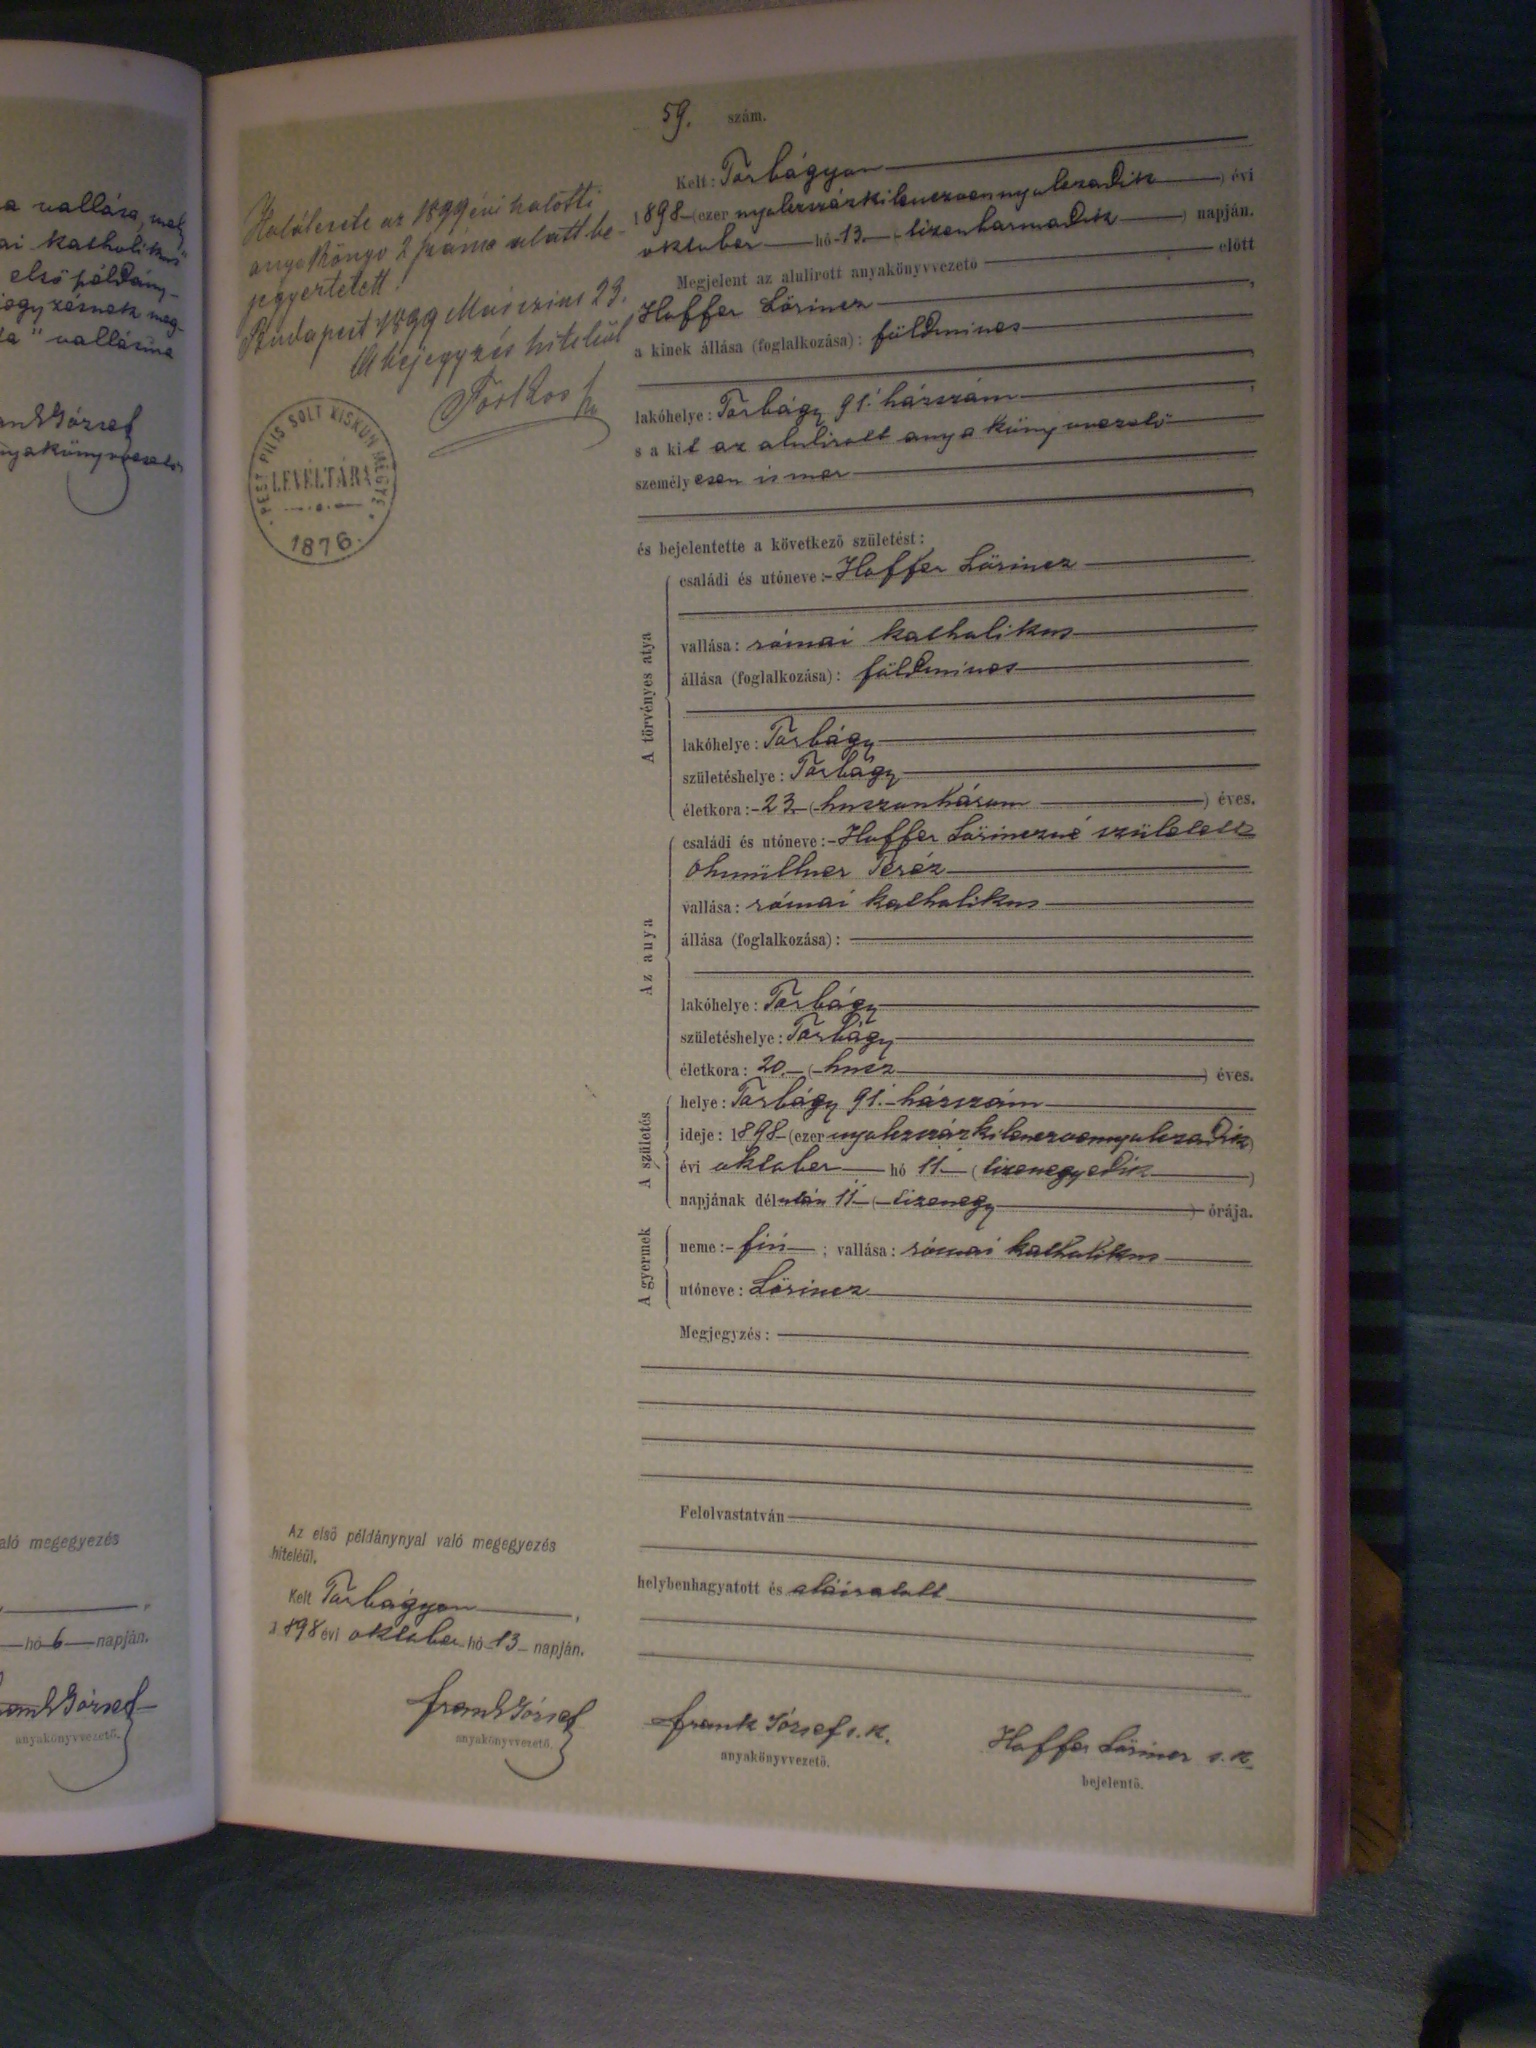 a vallása, mely
ai katholikus"
első példány-
jegyzésnek meg-
" vallásúna
József
anyakönyvvezető
való megegyezés
hó 6 napján.
József
anyakönyvvezető.
Halálesete az 1899 évi halotti
anyakönyv 2 száma alatt be-
jegyeztetett.
Budapest 1899 Márczius 23.
A bejegyzés hiteléül
PEST PILIS SOLT KISKUN MEGYE
LEVÉLTÁRA
1876.
59. szám.
Kelt: Torbágyon
1898 (ezer nyolczszázkilenczvennyolczadik) évi
oktober hó 13. (tizenharmadik) napján.
Megjelent az alulirott anyakönyvvezető előtt
Hoffer Lőrincz,
a kinek állása (foglalkozása): földmives
lakóhelye: Torbágy 91. házszám,
s a kit az alulirott anyakönyvvezető
személyesen ismer,
és bejelentette a következő születést:
A törvényes atya
családi és utóneve: Hoffer Lőrincz
vallása: római katholikus
állása (foglalkozása): földmives
lakóhelye: Torbágy
születéshelye: Torbágy
életkora: 23. (huszonhárom) éves.
Az anya
családi és utóneve: Hoffer Lőrinczné született
Ohmüllner Teréz
vallása: római katholikus
állása (foglalkozása):
lakóhelye: Torbágy
születéshelye: Torbágy
életkora: 20. (husz) éves.
A születés
helye: Torbágy 91. házszám
ideje: 1898 (ezer nyolczszázkilenczvennyolczadik)
évi oktober hó 11. (tizenegyedik)
napjának délután 11 (tizenegy) órája.
A gyermek
neme: fiú; vallása: római katholikus
utóneve: Lőrincz
Megjegyzés:
Felolvastatván
helybenhagyatott és aláiratott
Az első példánynyal való megegyezés
hiteléül.
Kelt Torbágyon,
1898 évi oktober hó 13 napján.
Frank József
anyakönyvvezető.
Frank József s. k.
anyakönyvvezető.
Hoffer Lőrincz s. k.
bejelentő.